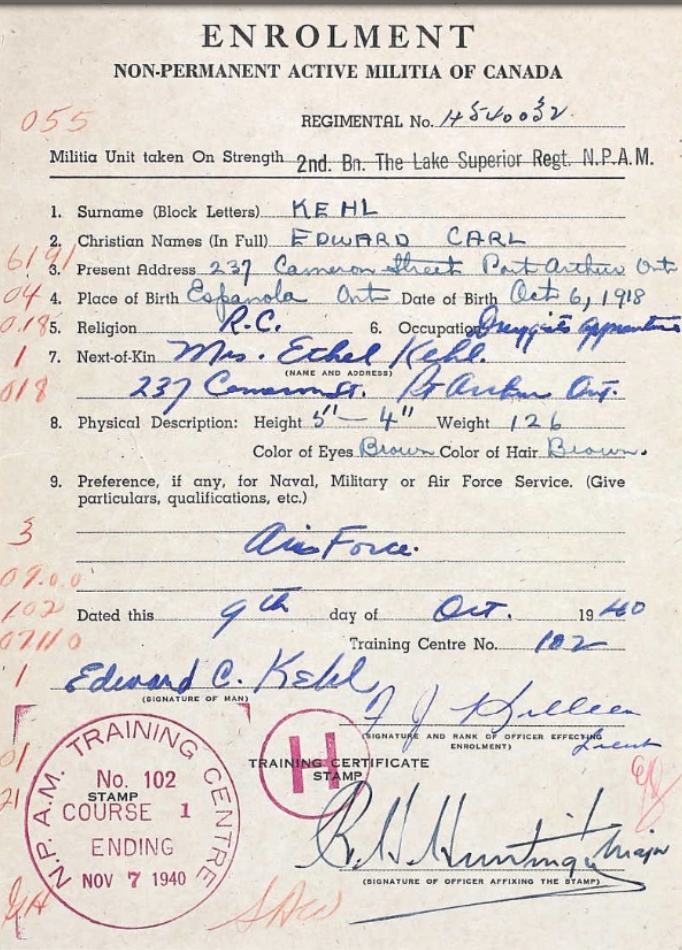 ENROLMENT
NON-PERMANENT ACTIVE MILITIA OF CANADA
055
REGIMENTAL No. H540032
Militia Unit taken On Strength 2nd. Bn. The Lake Superior Regt. N.P.A.M.
1. Surname (Block Letters) KEHL
2. Christian Names (In Full) EDWARD CARL
6191
3. Present Address 237 Cameron Street Port Arthur Ont
04 4. Place of Birth Espanola Ont Date of Birth Oct 6, 1918
018 5. Religion R.C. 6. Occupation Druggists apprentice
1 7. Next-of-Kin Mrs. Ethel Kehl.
(NAME AND ADDRESS)
018 237 Cameron St. Pt Arthur Ont.
8. Physical Description: Height 5' - 4" Weight 126
Color of Eyes Brown Color of Hair Brown.
9. Preference, if any, for Naval, Military or Air Force Service. (Give
particulars, qualifications, etc.)
3
Air Force.
09.0.0
102 Dated this 9th day of Oct. 1940
07110 Training Centre No. 102
1 Edward C. Kehl
(SIGNATURE OF MAN)
F J Killeen
(SIGNATURE AND RANK OF OFFICER EFFECTING
ENROLMENT) Lieut
N.P.A.M. TRAINING CENTRE
No. 102
STAMP
COURSE 1
ENDING
NOV 7 1940
H
TRAINING CERTIFICATE
STAMP
01
21
R. H. Hunting Major
(SIGNATURE OF OFFICER AFFIXING THE STAMP)